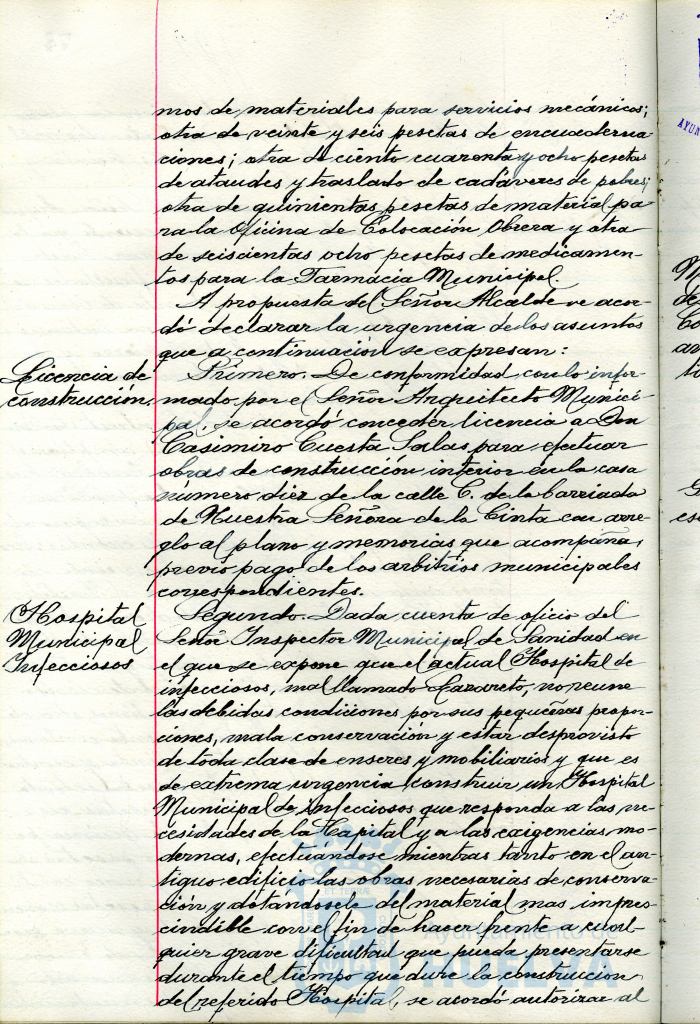 mos de materiales para servicios mecánicos;
otra de veinte y seis pesetas de encuaderna-
ciones; otra de ciento cuarenta y ocho pesetas
de ataudes y traslado de cadáveres de pobres;
otra de quinientas pesetas de material pa-
ra la Oficina de Colocación Obrera y otra
de seiscientas ocho pesetas de medicamen-
tos para la Farmacia Municipal.
A propuesta del Señor Alcalde se acor-
dó declarar la urgencia de los asuntos
que a continuación se expresan:
Licencia de
construcción.
Primero. De conformidad con lo infor-
mado por el Señor Arquitecto Munici-
pal, se acordó conceder licencia a Don
Casimiro Cuesta Salas para efectuar
obras de construcción interior en la casa
número diez de la calle C. de la barriada
de Nuestra Señora de la Cinta con arre-
glo al plano y memorias que acompaña,
previo pago de los arbitrios municipales
correspondientes.
Hospital
Municipal
Infecciosos
Segundo. Dada cuenta de oficio del
Señor Inspector Municipal de Sanidad en
el que se expone que el actual Hospital de
infecciosos, mal llamado Lazareto, no reune
las debidas condiciones por sus pequeñas propor-
ciones, mala conservación y estar desprovisto
de toda clase de enseres y mobiliarios y que es
de extrema urgencia construir un Hospital
Municipal de infecciosos que responda a las ne-
cesidades de la Capital y a las exigencias mo-
dernas, efectuandose mientras tanto en el an-
tiguo edificio las obras necesarias de conserva-
ción y dotandosele del material mas impres-
cindible con el fin de hacer frente a cual-
quier grave dificultad que puede presentarse
durante el tiempo que dure la construccion
del referido Hospital, se acordó autorizar al
Ayuntamiento de
HUELVA